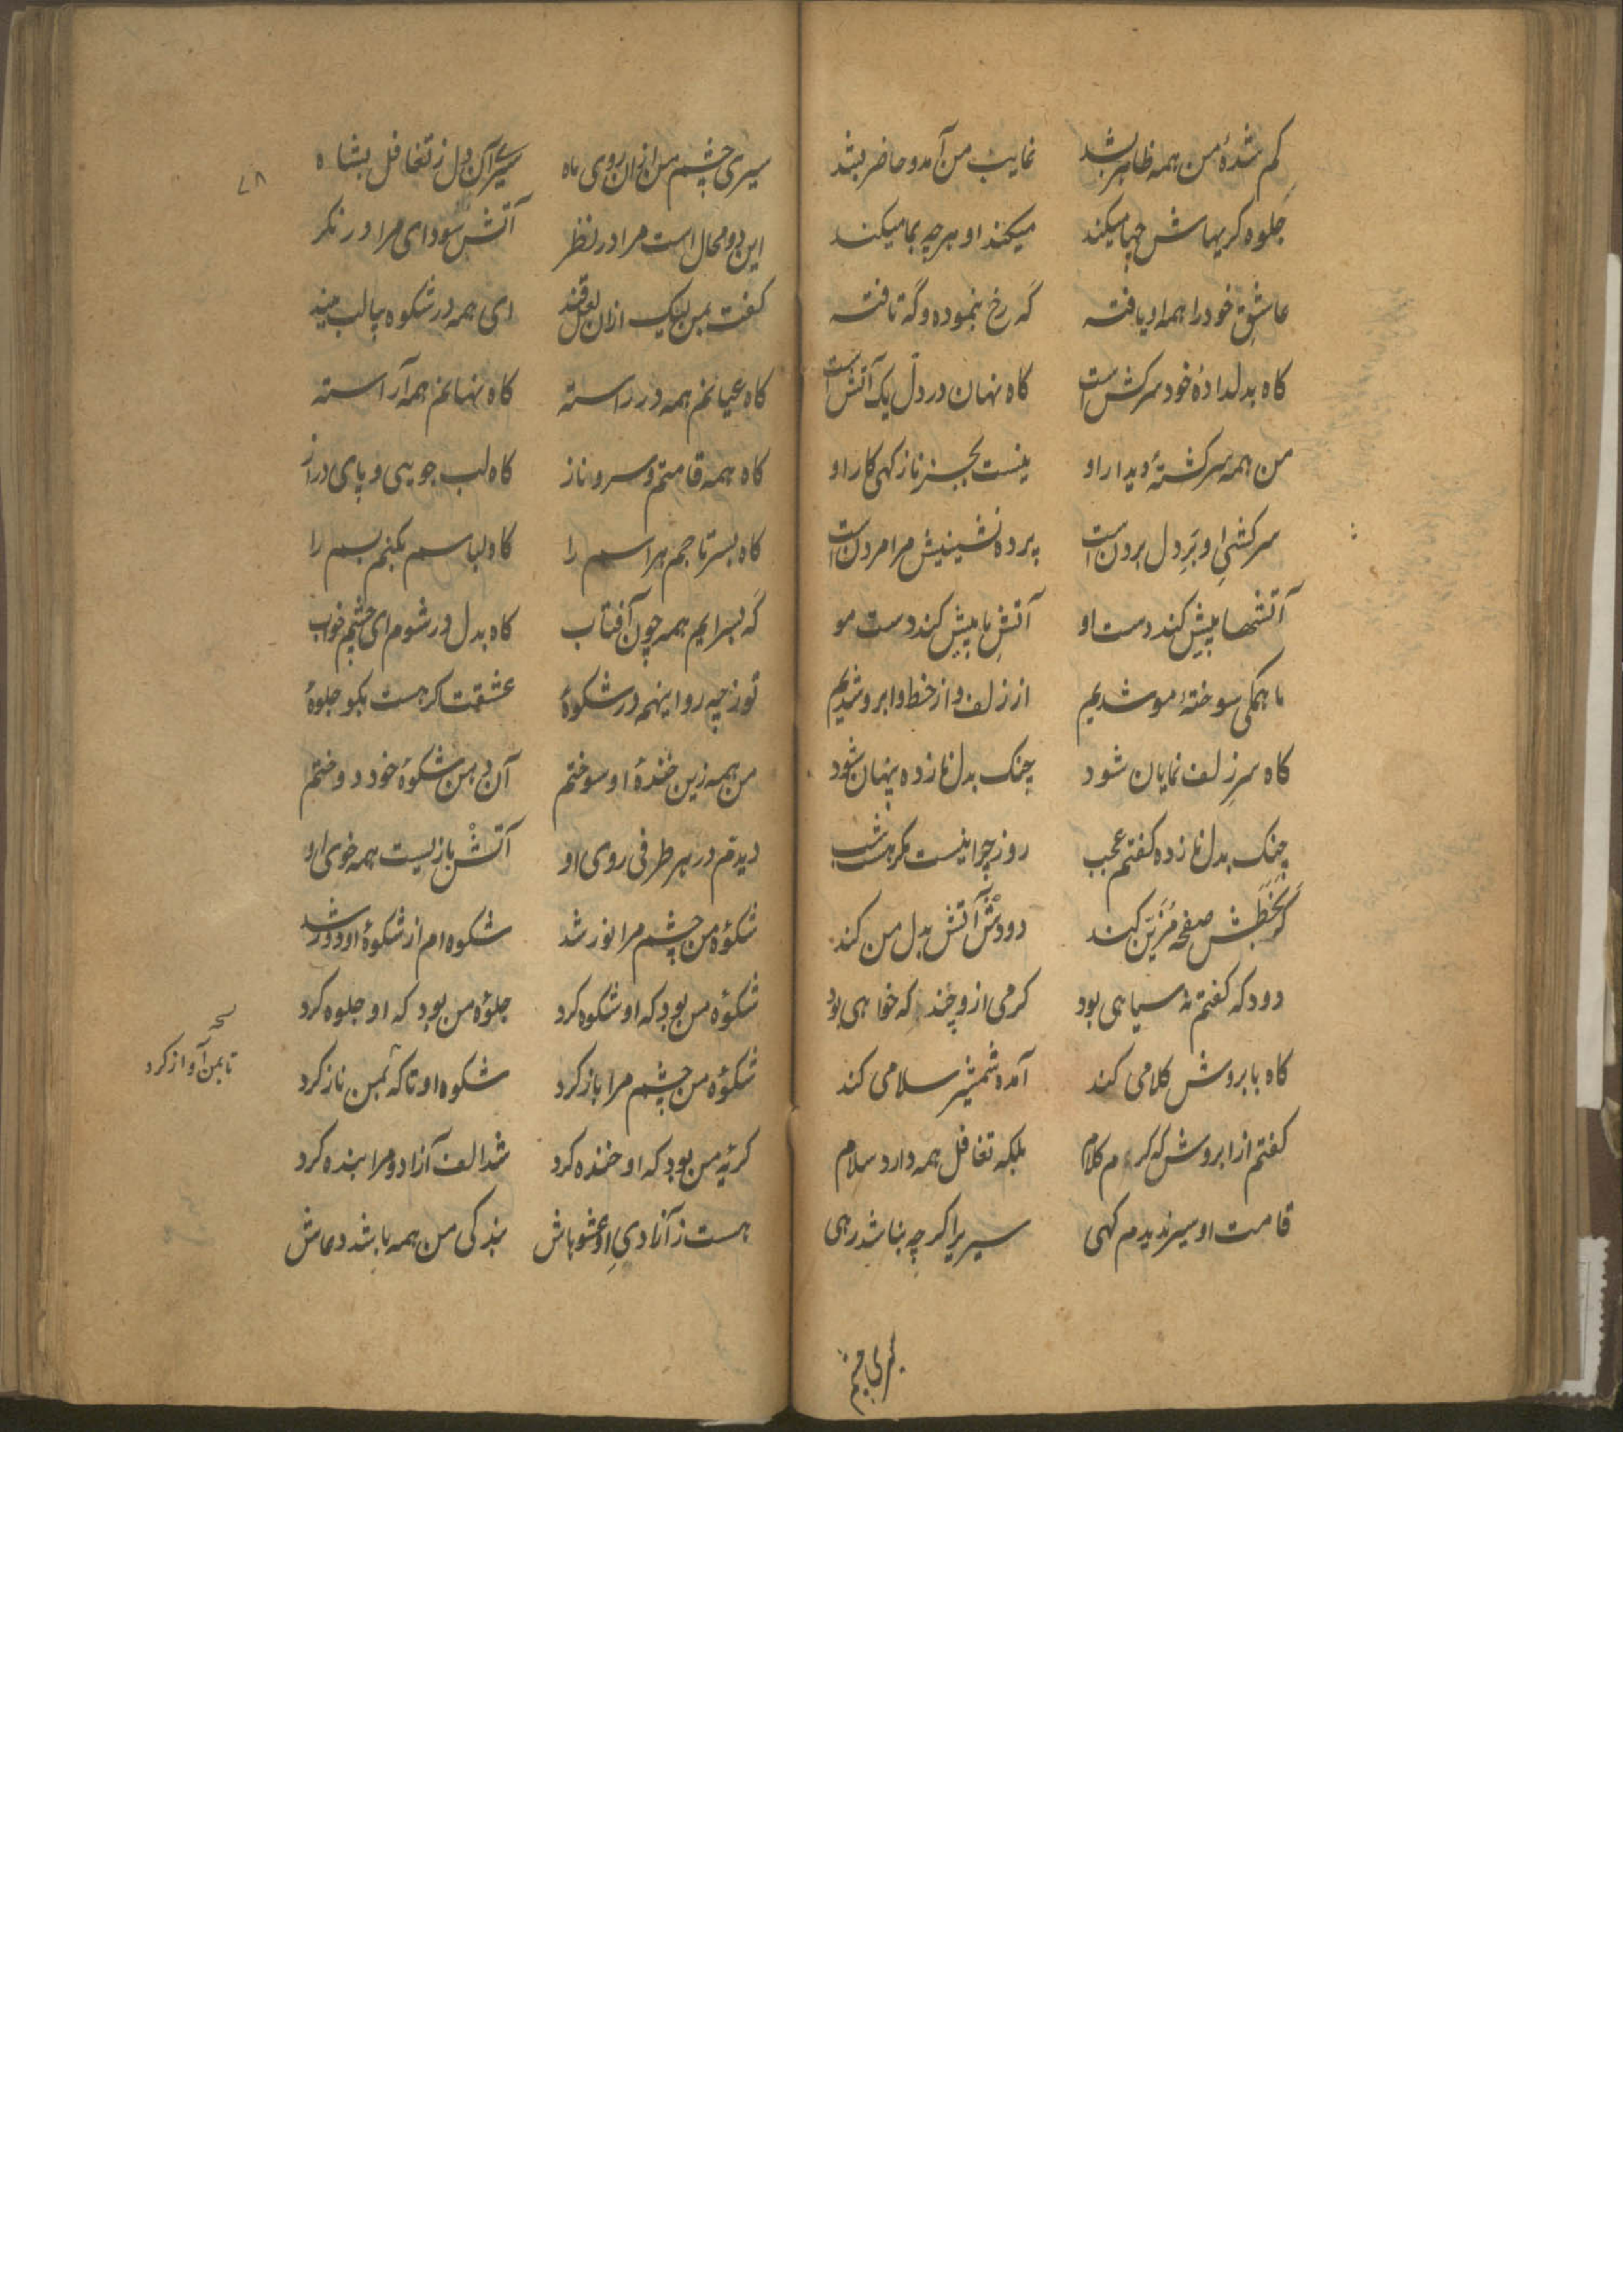 کم شدهٔ من همه ظاهر بشد غایب من آمد و حاضر بشد
جلوه کریهاش چها میکند میکند او هر چه بما میکند
عاشق خود را همه او یافته گه رخ بنموده و گه تافته
کاه بدلدادهٔ خود سرکش است کاه نهان در دل یک آتش است
من همه سرکشتهٔ دیدار او نیست بجز ناز کهی کار او
سرکشی او بَرِ دل بردن است پرده نشینیش مرا مردن است
آتشها پیش کند دست او آتش ما پیش کند دست مو
ما همکی سوختهٔ مو شدیم از زلف و از خط و ابرو شدیم
کاه سر زلف نمایان شود چنک بدل نازده پنهان شود
چنک بدل نازده کفتم عجب روز چرا نیست مکر هست شب
کر بخطش صفحه مزین کند دودش آتش بدل من کند
دود که کفتم نه سیاهی بود کرمی ازو چند که خواهی بود
کاه بابروش کلامی کند آمده شمشیر سلامی کند
کفتم از ابروش که کردم کلام بلکه تغافل همه دارد سلام
قامت او سیر ندیدم کهی سیر برا کرچه بناشد رهی
سیری چشم
۷۸
سیری چشم من ازان روی ماه سیری آن دل ز تغافل بشاه
این دو محال است مرا در نظر آتش سودای مرا در نکر
کفت بمن لیک ازان لعل قند ای همه در شکوه بیا لب ببند
کاه عیانم همه در راسته کاه نهانم همه آراسته
کاه همه قامتم و سرو ناز کاه لب جویی و پای دراز
کاه بسر تا جم هراسم را کاه لباسم بکنم بسم را
گه بسرایم همه چون آفتاب کاه بدل در شوم ای چشم خواب
تو ز چه رو اینهمه در شکوهٔ عشقت کر هست بکو جلوهٔ
من همه زین خندهٔ او سوختم آن دهن شکوهٔ خود دوختم
دیدم در هر طرفی روی او آتش بازیست همه خوی او
شکوهٔ من چشم مرا نور شد شکوه‌ام از شکوهٔ او دور شد
شکوهٔ من بود که او شکوه کرد جلوهٔ من بود که او جلوه کرد
شکوهٔ من چشم مرا باز کرد شکوه او تا که بمن ناز کرد
تا بمن آواز کرد
کریهٔ من بود که او خنده کرد شد الف آزاد و مرا بنده کرد
هست ز آزادی او عشوهاش بندکی من همه باشد دعاش